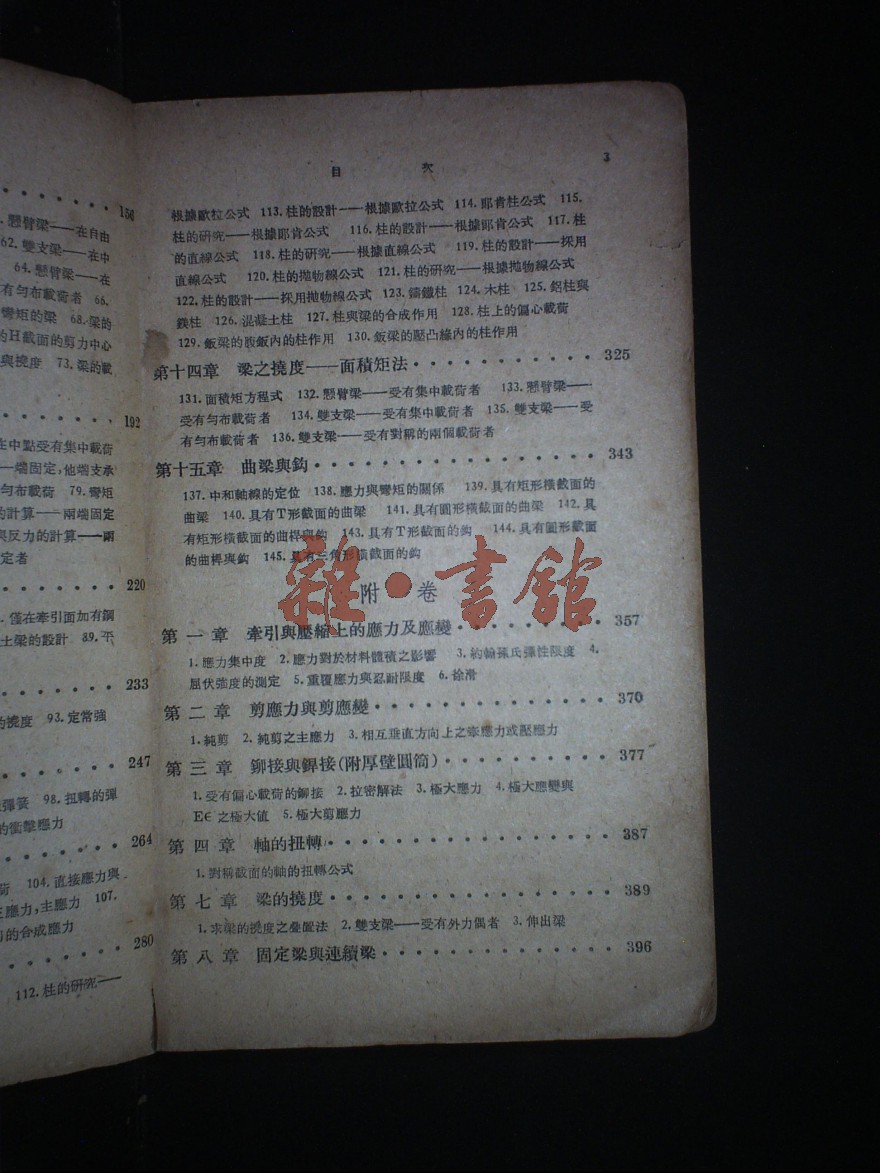 156
懸臂梁——在自由
62. 雙支梁——在中
64. 懸臂梁——在
有匀布載荷者 66.
彎矩的梁 68. 梁的
的H截面的剪力中心
與撓度 73. 梁的載
192
在中點受有集中載荷
一端固定,他端支承
匀布載荷 79. 彎矩
的計算——兩端固定
與反力的計算——兩
定者
220
僅在牽引面加有鋼
土梁的設計 89. 平
233
的撓度 93. 定常強
247
彈簧 98. 扭轉的彈
的衝擊應力
264
荷 104. 直接應力與
應力,主應力 107.
的合成應力
280
112. 柱的研究——
目 次 3
根據歐拉公式 113. 柱的設計——根據歐拉公式 114. 耶肯柱公式 115.
柱的研究——根據耶肯公式 116. 柱的設計——根據耶肯公式 117. 柱
的直線公式 118. 柱的研究——根據直線公式 119. 柱的設計——採用
直線公式 120. 柱的拋物線公式 121. 柱的研究——根據拋物線公式
122. 柱的設計——採用拋物線公式 123. 鑄鐵柱 124. 木柱 125. 鋁柱與
鎂柱 126. 混凝土柱 127. 柱與梁的合成作用 128. 柱上的偏心載荷
129. 鈑梁的腹鈑內的柱作用 130. 鈑梁的壓凸緣內的柱作用
第十四章 梁之撓度——面積矩法 325
131. 面積矩方程式 132. 懸臂梁——受有集中載荷者 133. 懸臂梁——
受有匀布載荷者 134. 雙支梁——受有集中載荷者 135. 雙支梁——受
有匀布載荷者 136. 雙支梁——受有對稱的兩個載荷者
第十五章 曲梁與鈎 343
137. 中和軸線的定位 138. 應力與彎矩的關係 139. 具有矩形橫截面的
曲梁 140. 具有T形截面的曲梁 141. 具有圓形橫截面的曲梁 142. 具
有矩形橫截面的曲桿與鈎 143. 具有T形截面的鈎 144. 具有圓形截面
的曲桿與鈎 145. 具有三角形橫截面的鈎
雜·書館
附 卷
第一章 牽引與壓縮上的應力及應變 357
1. 應力集中度 2. 應力對於材料體積之影響 3. 約翰孫氏彈性限度 4.
屈伏強度的測定 5. 重覆應力與忍耐限度 6. 徐滑
第二章 剪應力與剪應變 370
1. 純剪 2. 純剪之主應力 3. 相互垂直方向上之牽應力或壓應力
第三章 鉚接與銲接(附厚壁圓筒) 377
1. 受有偏心載荷的鉚接 2. 拉密解法 3. 極大應力 4. 極大應變與
E∈之極大值 5. 極大剪應力
第四章 軸的扭轉 387
1. 對稱截面的軸的扭轉公式
第七章 梁的撓度 389
1. 求梁的撓度之叠置法 2. 雙支梁——受有外力偶者 3. 伸出梁
第八章 固定梁與連續梁 396